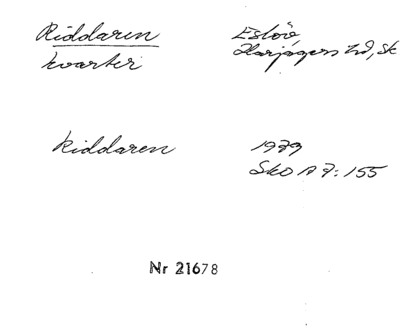 Riddaren Eslöv
kvarter Harjagers hd, Sk
Riddaren 1979
Sko A 7:155
Nr 21678